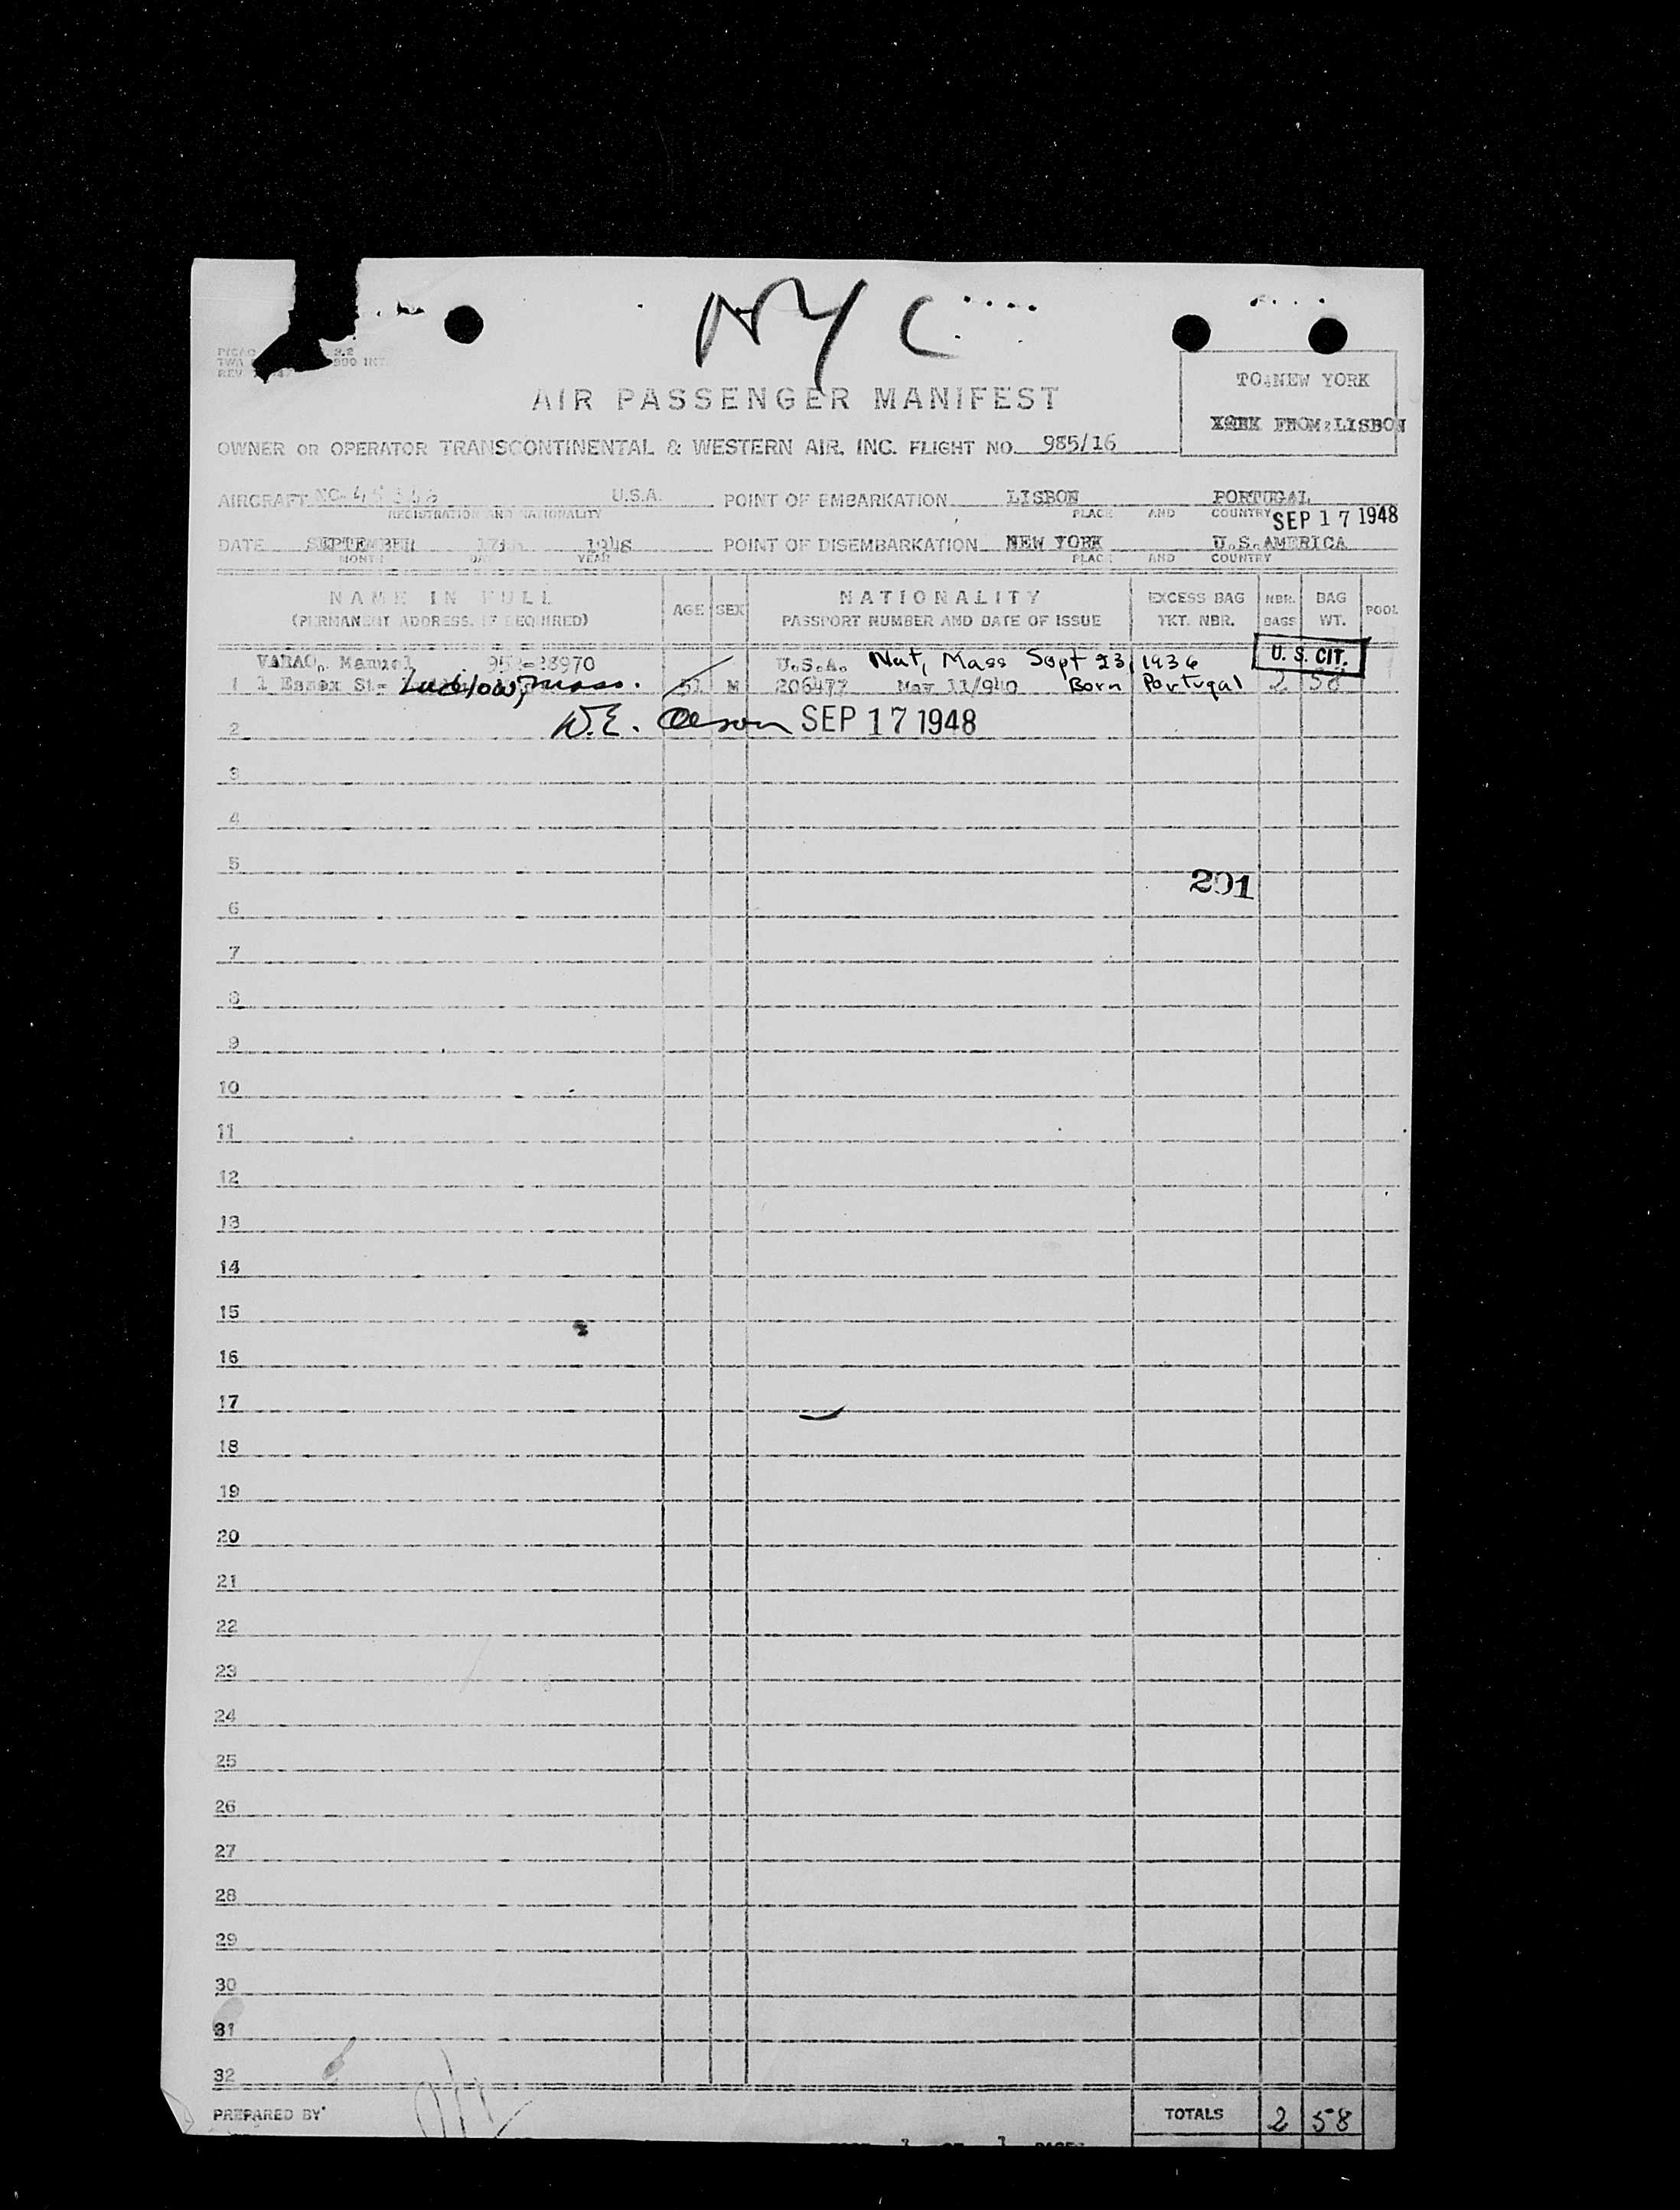 NYC
TWA
REV
AIR PASSENGER MANIFEST
TO:NEW YORK
FROM:LISBON
OWNER OR OPERATOR TRANSCONTINENTAL & WESTERN AIR, INC. FLIGHT NO. 985/16
AIRCRAFT NC- U.S.A. POINT OF EMBARKATION LISBON PORTUGAL
REGISTRATION AND NATIONALITY PLACE AND COUNTRY SEP 17 1948
DATE SEPTEMBER 1948 POINT OF DISEMBARKATION NEW YORK U.S.AMERICA
MONTH DAY YEAR PLACE AND COUNTRY
NAME IN FULL AGE SEX NATIONALITY EXCESS BAG NBR. BAG POOL
(PERMANENT ADDRESS, IF REQUIRED) PASSPORT NUMBER AND DATE OF ISSUE TKT. NBR. BAGS WT.
VARAO, Manuel U.S.A. Nat, Mass Sept 23, 1936 U. S. CIT.
1 1 Essex St- Ludlow, Mass. 51 M 206477 Born Portugal 2 58
2 W.E. Olson SEP 17 1948
3
4
5
201
6
7
8
9
10
11
12
13
14
15
16
17
18
19
20
21
22
23
24
25
26
27
28
29
30
31
32
PREPARED BY TOTALS 2 58